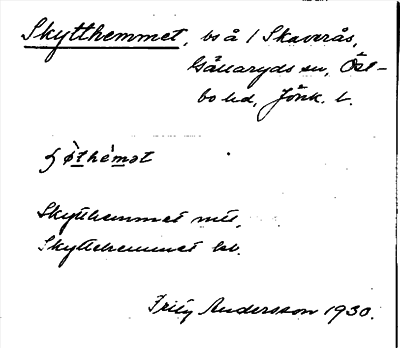 Skytthemmet, bs å 1 Skaverås,
Gällaryds sn, Öst-
bo hd, Jönk. l.
ʃøthémət
Skytthemmet mtl,
Skyttehemmet kl.
Fritz Andersson 1930.